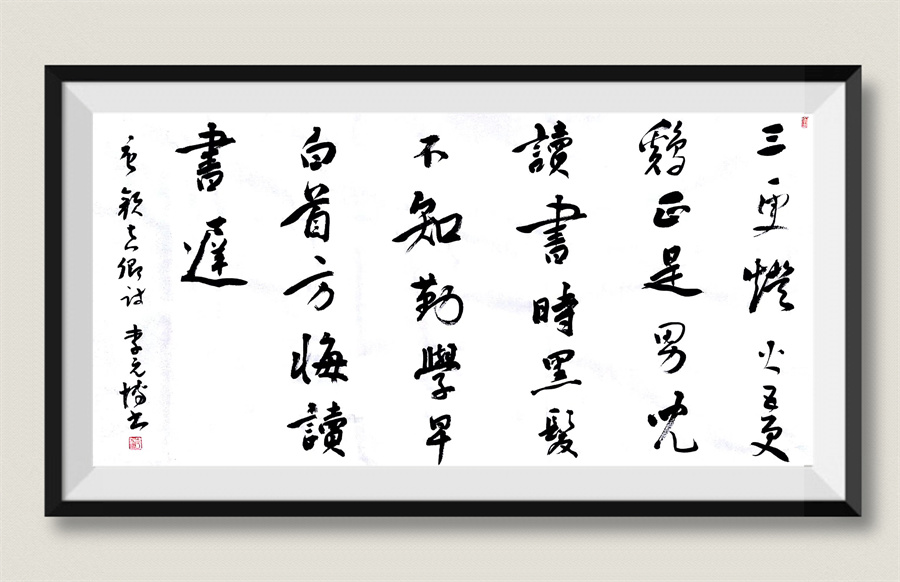 三更燈火五更
鷄正是男兒
讀書時黑髮
不知勤學早
白首方悔讀
書遲
顏真卿詩 李元博書